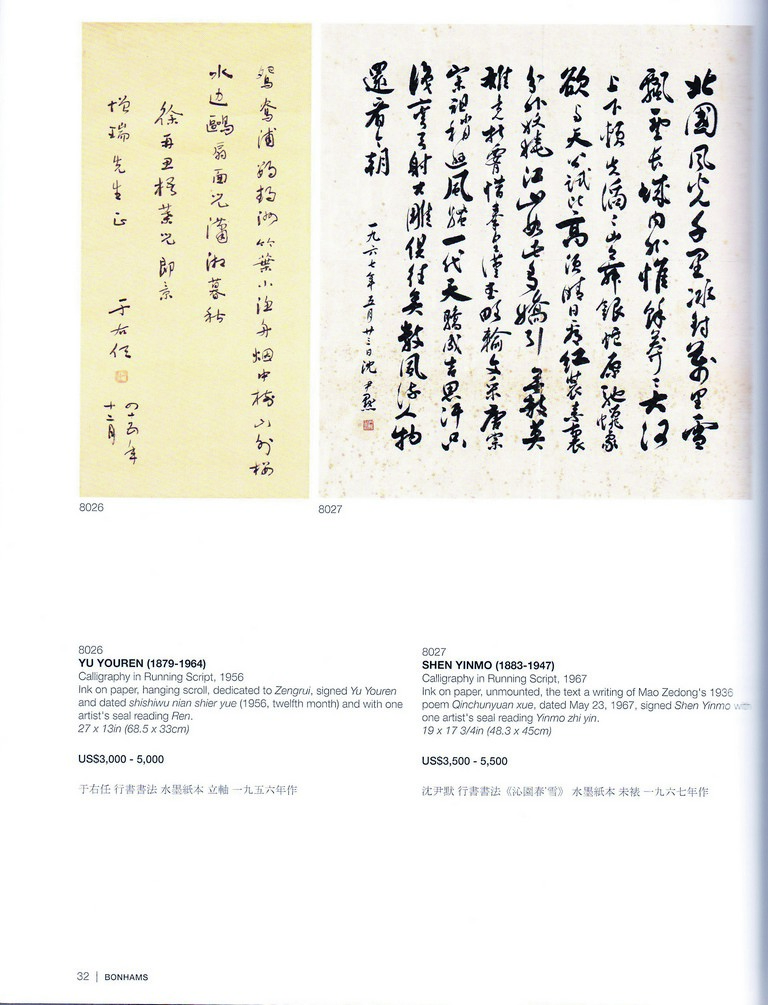 鴛鴦浦鸚鵡洲竹葉小漁舟烟中樹山外樓
水边鷗扇面兒瀟湘暮秋
徐再思梧葉兒即景
增瑞先生正
于右任
四十五年
十二月
8026
北國風光千里冰封萬里雪
飄望長城內外惟餘莽〻大河
上下頓失滔〻山舞銀蛇原馳蠟象
欲與天公試比高須晴日看紅裝素裹
分外妖嬈江山如此多嬌引無數英
雄競折腰惜秦皇漢武略輸文采唐宗
宋祖稍遜風騷一代天驕成吉思汗只
識彎弓射大雕俱往矣數風流人物
還看今朝
一九六七年五月廿三日沈尹默
8027
8026
YU YOUREN (1879-1964)
Calligraphy in Running Script, 1956
Ink on paper, hanging scroll, dedicated to Zengrui, signed Yu Youren
and dated shishiwu nian shier yue (1956, twelfth month) and with one
artist's seal reading Ren.
27 x 13in (68.5 x 33cm)
US$3,000 - 5,000
于右任 行書書法 水墨紙本 立軸 一九五六年作
8027
SHEN YINMO (1883-1947)
Calligraphy in Running Script, 1967
Ink on paper, unmounted, the text a writing of Mao Zedong's 1936
poem Qinchunyuan xue, dated May 23, 1967, signed Shen Yinmo with
one artist's seal reading Yinmo zhi yin.
19 x 17 3/4in (48.3 x 45cm)
US$3,500 - 5,500
沈尹默 行書書法《沁園春˙雪》 水墨紙本 未裱 一九六七年作
32 | BONHAMS